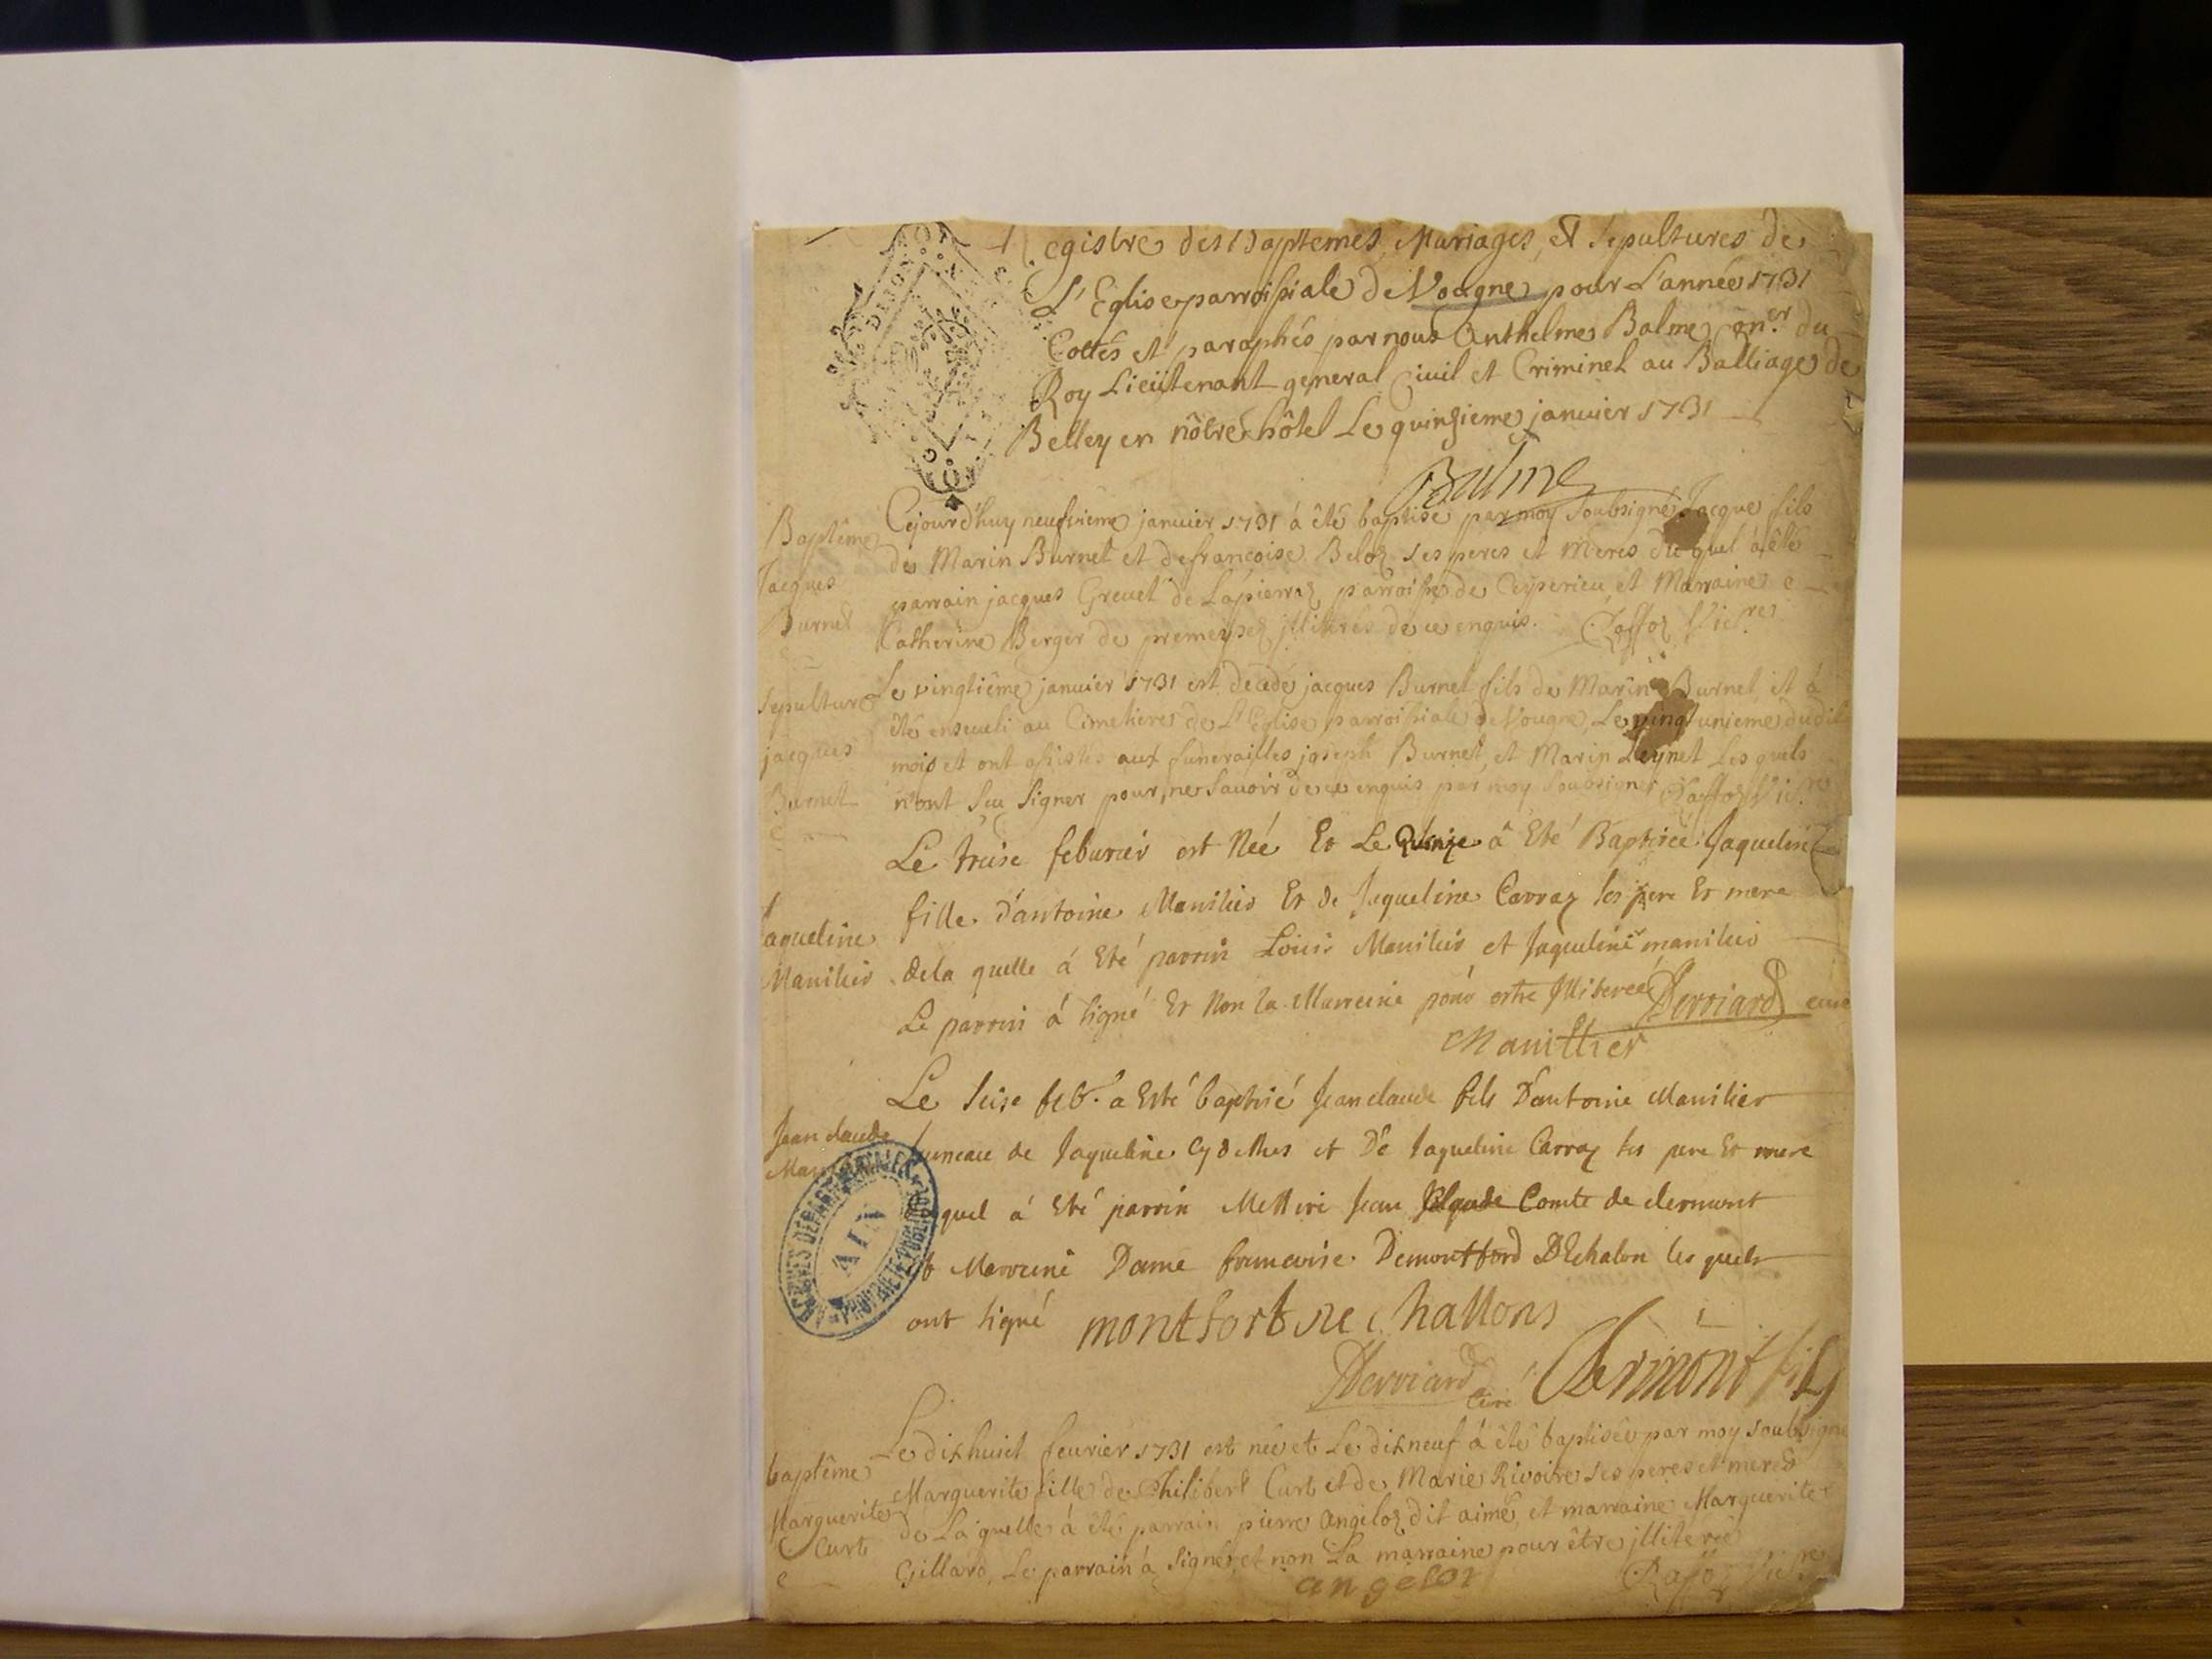 Registre des Baptemes, Mariages, et Sepultures de
L'Eglise parroissiale de Vougne pour L'année 1731
Cottés et paraphés par nous Anthelme Balme Con.er du
Roy Lieutenant general Civil et Criminel au Balliage de
Belley en nôtre hôtel Le quinzieme janvier 1731
Balme
Baptême
Jacques
Burnet
Cejourd'huy neufvieme janvier 1731 à été baptisé par moy soubsigné Jacque fils
de Marin Burnet et de francoise Beloz ses peres et meres duquel à été
parrain jacques Grevet de Lapierraz parroisse de Ceyserieu, et Marraine
Catherine Berger de premeysel jlliterés de ce enquis. Raffoz Vic.re
Sepulture
jacques
Burnet
Le vingtiême janvier 1731 est decedé jacques Burnet fils de Marin Burnet et à
été enseveli au Cimetiere de L'Eglise parroissiale de Vougne, Le vingtunieme dudit
mois et ont assistés aux funerailles joseph Burnet, et Marin Leynet Lesquels
n'ont sçu signer pour ne savoir de ce enquis par moy soubsigné Raffoz Vic.re
Jaqueline
Manilier
Le treise feburier est Née Et Le Quinze à Eté Baptisée Jaqueline
fille d'antoine Manilier Et de Jaqueline Carraz ses pere Et mere
de la quelle á Eté parrin Louis Manilier et Jaqueline manilier
Le parrin á signé Et Non la Marreine pour estre Jlliterée Derviard curé
Manillier
Jean claude
Le seise feb.r a Esté baptisé Jean claude fils D'antoine Manilier
Jumeau de Jaqueline Cy dessus et De Jaqueline Carraz ses pere Et mere
duquel á Eté parrin Messire Jean Claude Comte de clermont
Et Marreine Dame francoise Demontford DEchalon lesquels
ont signé montfort de challons
Derviard Curé Clermont fils
baptême
Marguerite
Curt
Le dixhuict fevrier 1731 est née et Le dixneuf à été baptisée par moy soubsigné
Marguerite fille de Philibert Curt et de Marie Rivoire ses peres et meres
de Laquelle à été parrain pierre angeloz dit aimé, et marraine Marguerite
Gillard, Le parrain à signé et non La marraine pour être jlliterée
angeloz Raffoz Vic.re
ARCHIVES DÉPARTEMENTALES
AIN
PROPRIÉTÉ PUBLIQUE